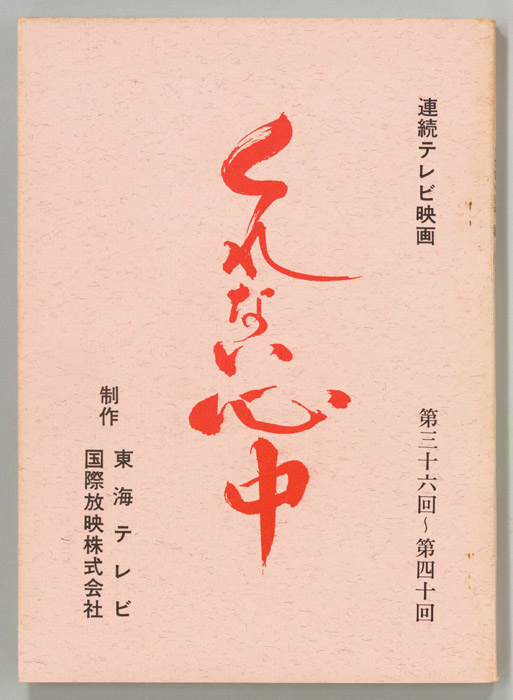 連続テレビ映画
第三十六回～第四十回
くれない心中
制作
東海テレビ
国際放映株式会社